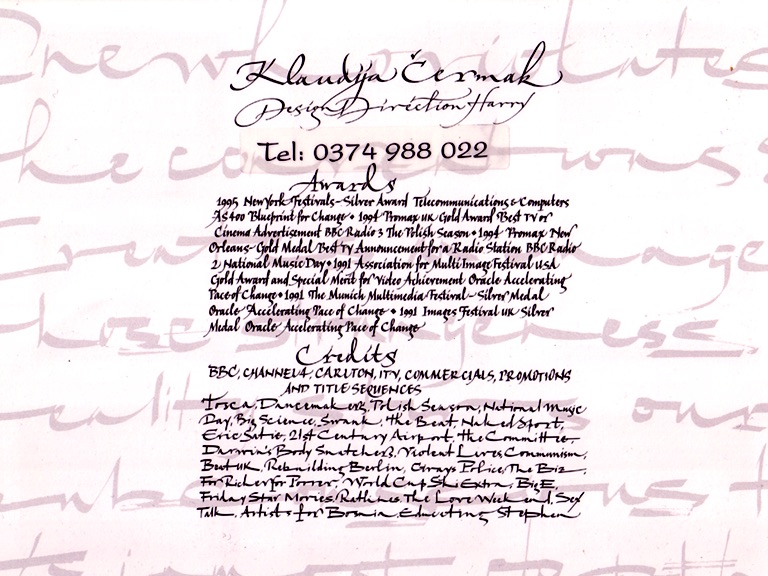 Klaudija Čermak
Design Direction Harry
Tel: 0374 988 022
Awards
1995 New York Festivals - Silver Award Telecommunications & Computers
AS400 Blueprint for Change • 1994 Promax UK Gold Award Best TV or
Cinema Advertisement BBC Radio 3 The Polish Season • 1994 Promax New
Orleans - Gold Medal Best TV Announcement for a Radio Station BBC Radio
2 National Music Day • 1991 Association for Multi Image Festival USA
Gold Award and Special Merit for Video Achievement Oracle Accelerating
Pace of Change • 1991 The Munich Multimedia Festival - Silver Medal
Oracle Accelerating Pace of Change • 1991 Images Festival UK Silver
Medal Oracle Accelerating Pace of Change
Credits
BBC, CHANNEL4, CARLTON, ITV, COMMERCIALS, PROMOTIONS
AND TITLE SEQUENCES
Tosca, Dancemakers, Polish Season, National Music
Day, Big Science, Swank, the Beat, Naked Sport,
Eric Satie, 21st Century Airport, the Committee,
Darwin's Body Snatchers, Violent Lives Communism,
Beat UK, Rebuilding Berlin, Grays Police, The Biz
For Richer for Poorer, World Cup Ski Extra, Big E,
Friday Star Movies, Ruthless, The Love Weekend, Sex
Talk, Artists for Bosnia, Educating Stephen